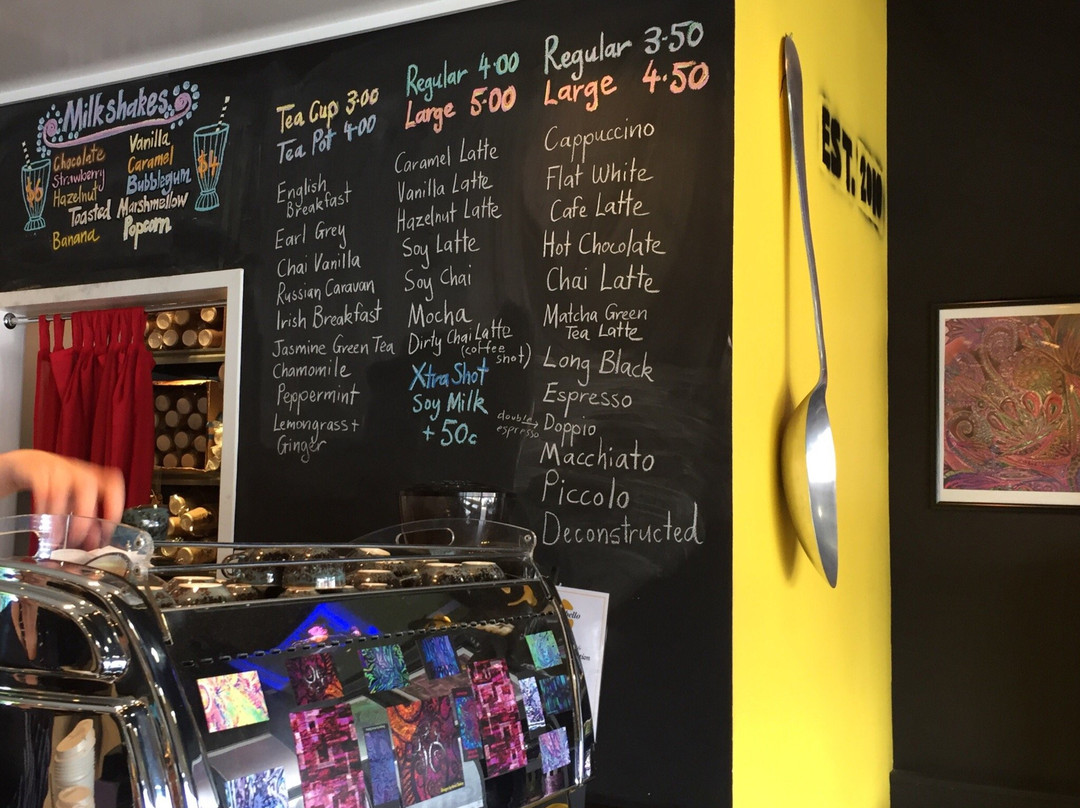 Milkshakes
Chocolate
Strawberry
Hazelnut
Toasted Marshmellow
Banana
Vanilla
Caramel
Bubblegum
Popcorn
$6
$4
Tea Cup 3.00
Tea Pot 4.00
English
Breakfast
Earl Grey
Chai Vanilla
Russian Caravan
Irish Breakfast
Jasmine Green Tea
Chamomile
Peppermint
Lemongrass +
Ginger
Regular 4.00
Large 5.00
Caramel Latte
Vanilla Latte
Hazelnut Latte
Soy Latte
Soy Chai
Mocha
Dirty Chai Latte
(coffee
shot)
Xtra Shot
Soy Milk
+ 50c
Regular 3.50
Large 4.50
Cappuccino
Flat White
Cafe Latte
Hot Chocolate
Chai Latte
Matcha Green
Tea Latte
Long Black
Espresso
double
espresso
Doppio
Macchiato
Piccolo
Deconstructed
EST.